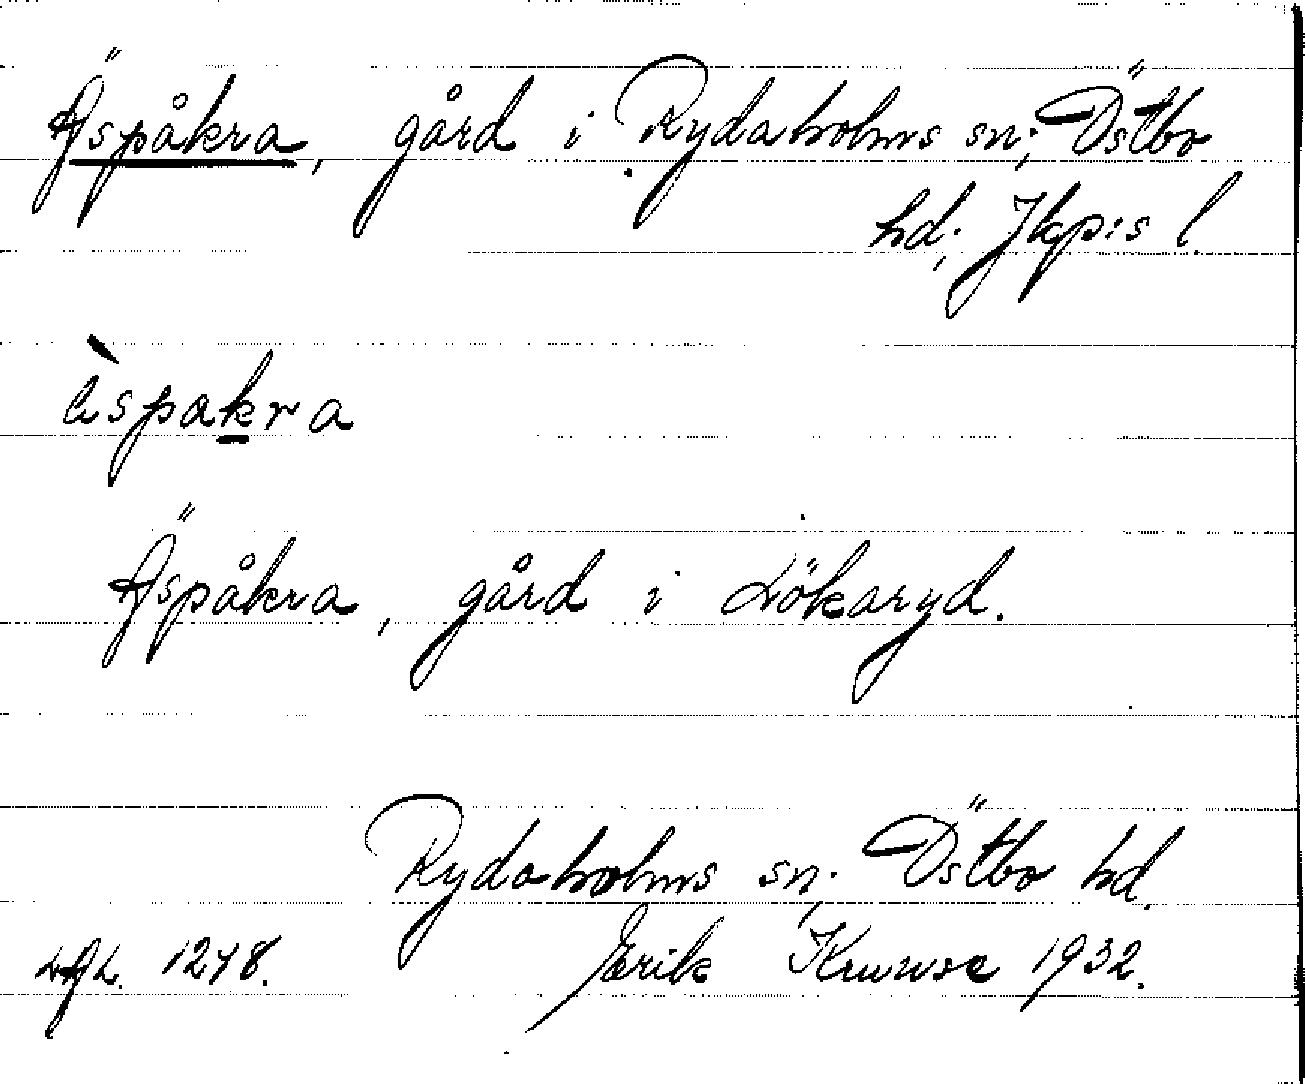 Äspåkra, gård i Rydaholms sn; Östbo
hd; Jkp:s l.
èspakra
Äspåkra, gård i Lökaryd.
Rydaholms sn; Östbo hd.
LAL. 1248. Erik Kruuse 1932.